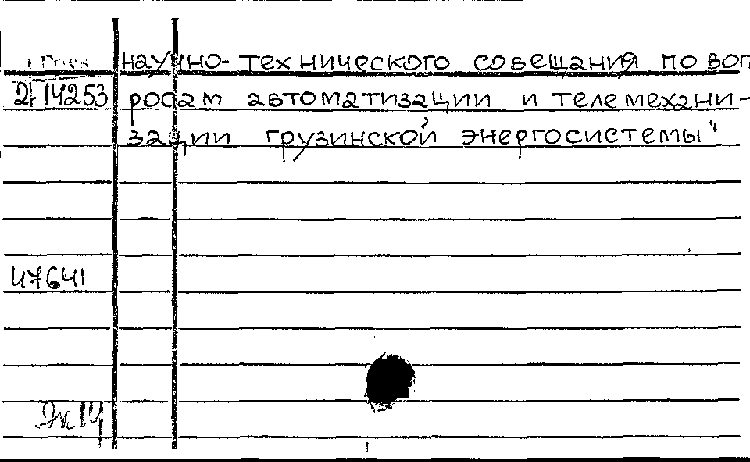 научно-технического совещания по воп
14253 росам автоматизации и телемехани-
зации грузинской энергосистемы"
47641